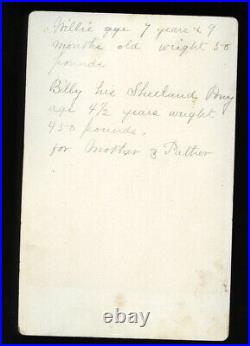 Willie age 7 years & 9
months old wright 50
pounds
Billy his Sheeland Pony
age 4½ years weight
450 pounds.
for Mother & Father
bidbegin.com